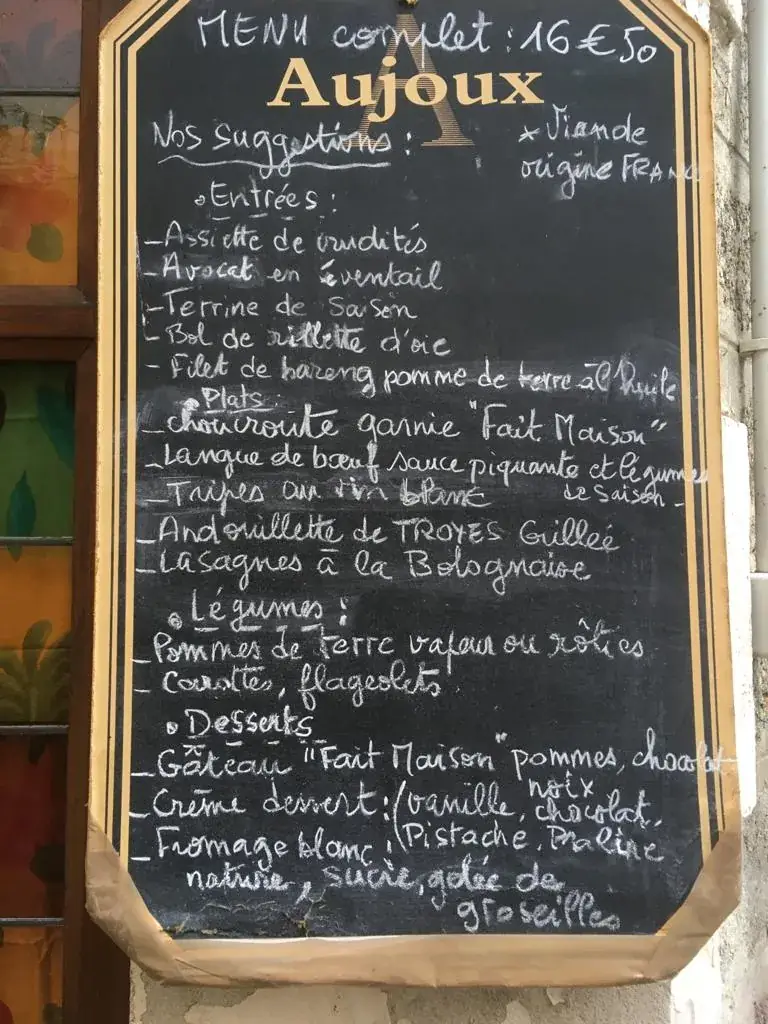 MENU complet : 16 € 50
Aujoux
Nos suggestions :
* Viande
origine FRANC
• Entrées :
- Assiette de crudités
- Avocat en éventail
- Terrine de saison
- Bol de rillette d'oie
- Filet de hareng pomme de terre à l'huile
• Plats :
- choucroute garnie "Fait Maison"
- Langue de bœuf sauce piquante et légumes
de saison -
- Tripes au vin blanc
- Andouillette de TROYES Grilleé
- Lasagnes à la Bolognaise
• Légumes :
- Pommes de terre vapeur ou rôties
- Carottes, flageolets
• Desserts
- Gâteau "Fait Maison" pommes, chocolat
noix
- Crème dessert : (vanille, chocolat,
Pistache, Praline
- Fromage blanc :
nature, sucre, gelée de
groseilles